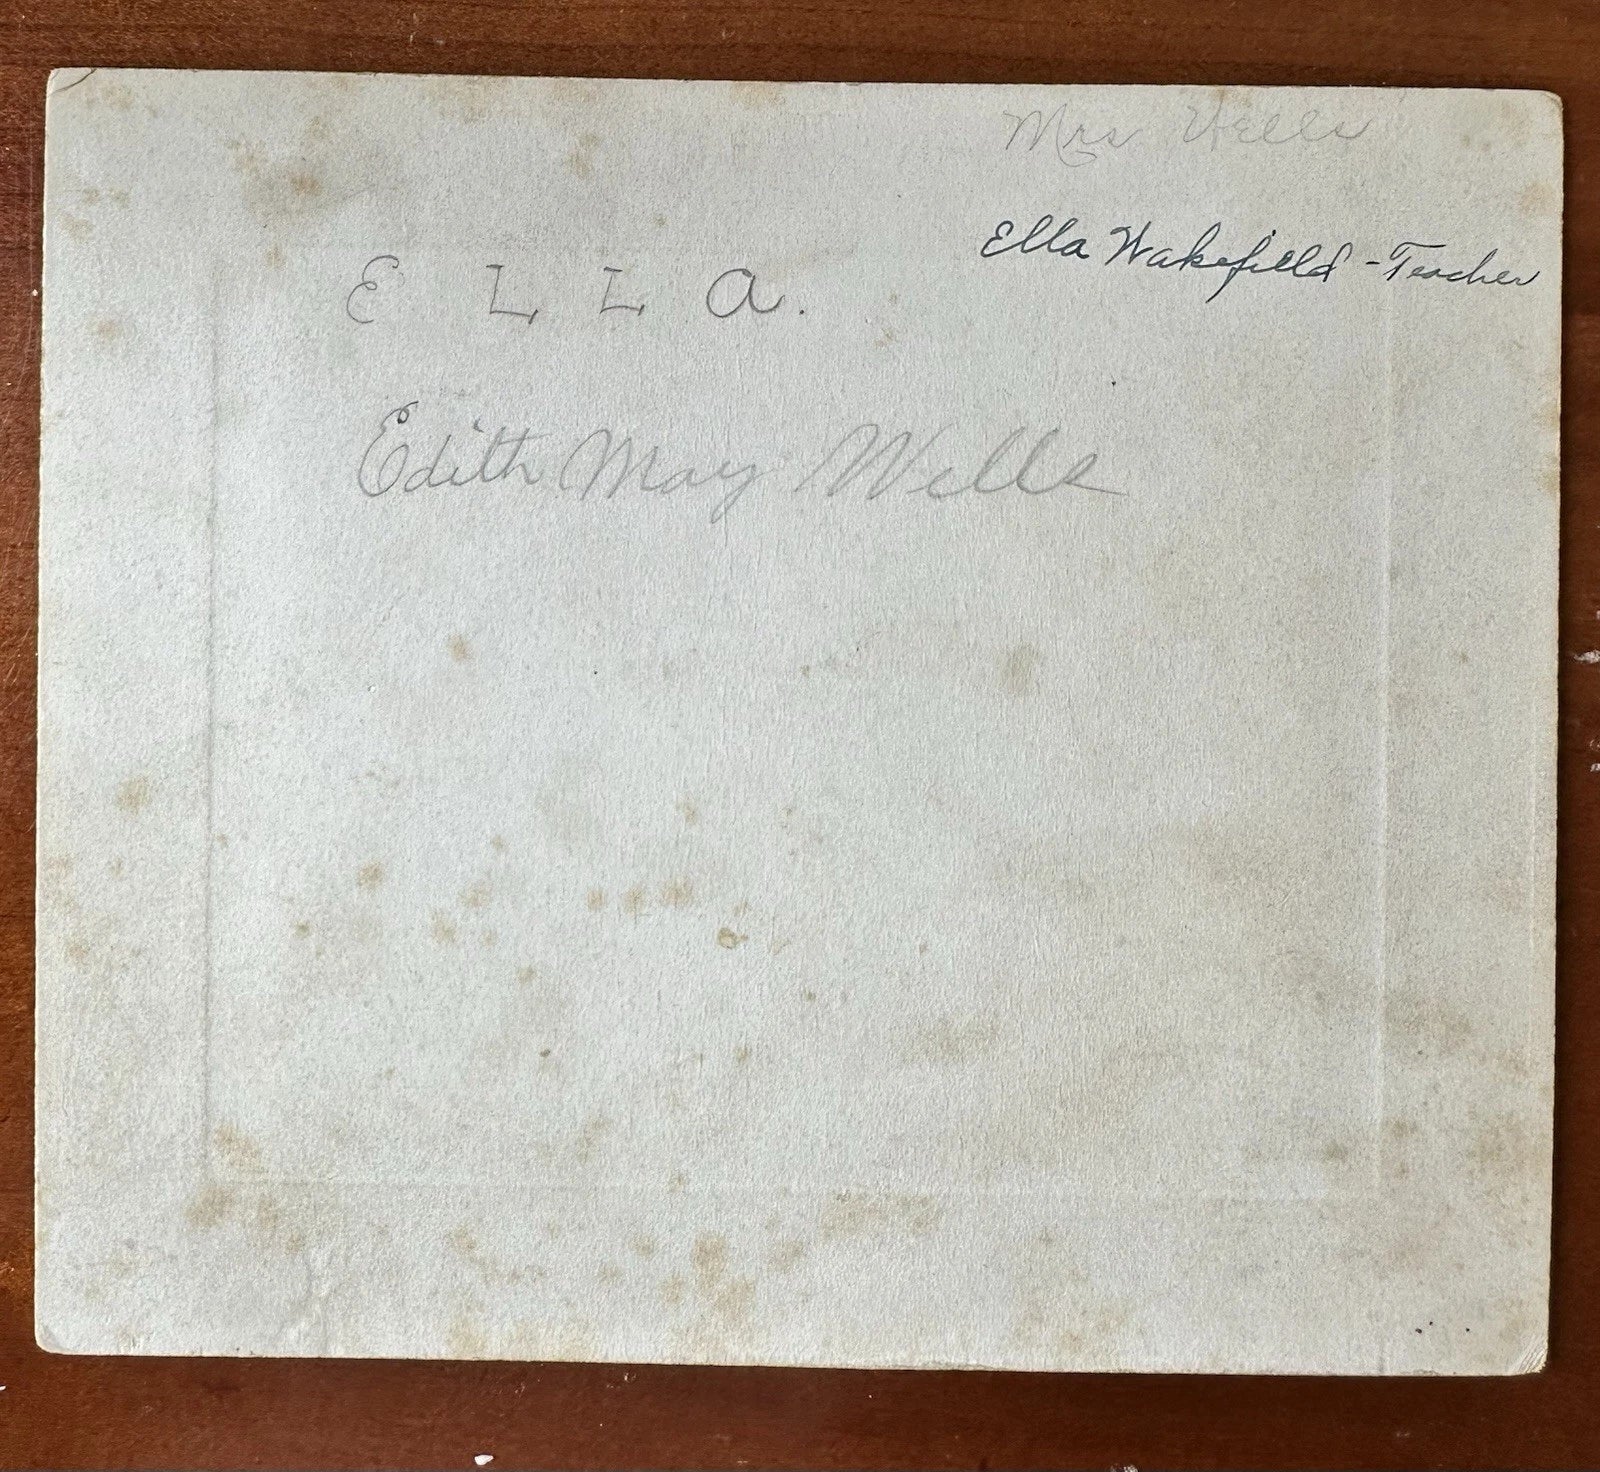 Mrs Wells
Ella Wakefield - Teacher
E L L a.
Edith May Wells